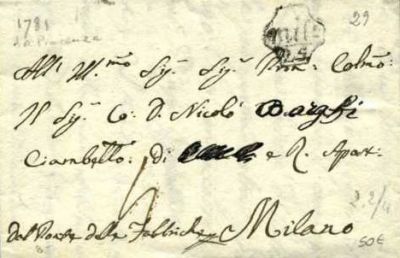 1781
da Piacenza
29
All' Ill.mo Sig.r Sig.r Pron: Colmo:
Il Sig.r Co: D. Nicolò Barghi
Ciambell.o: di e R. Apar:
2
2.2/4
dal Ponte delle Fabbriche Milano
50€